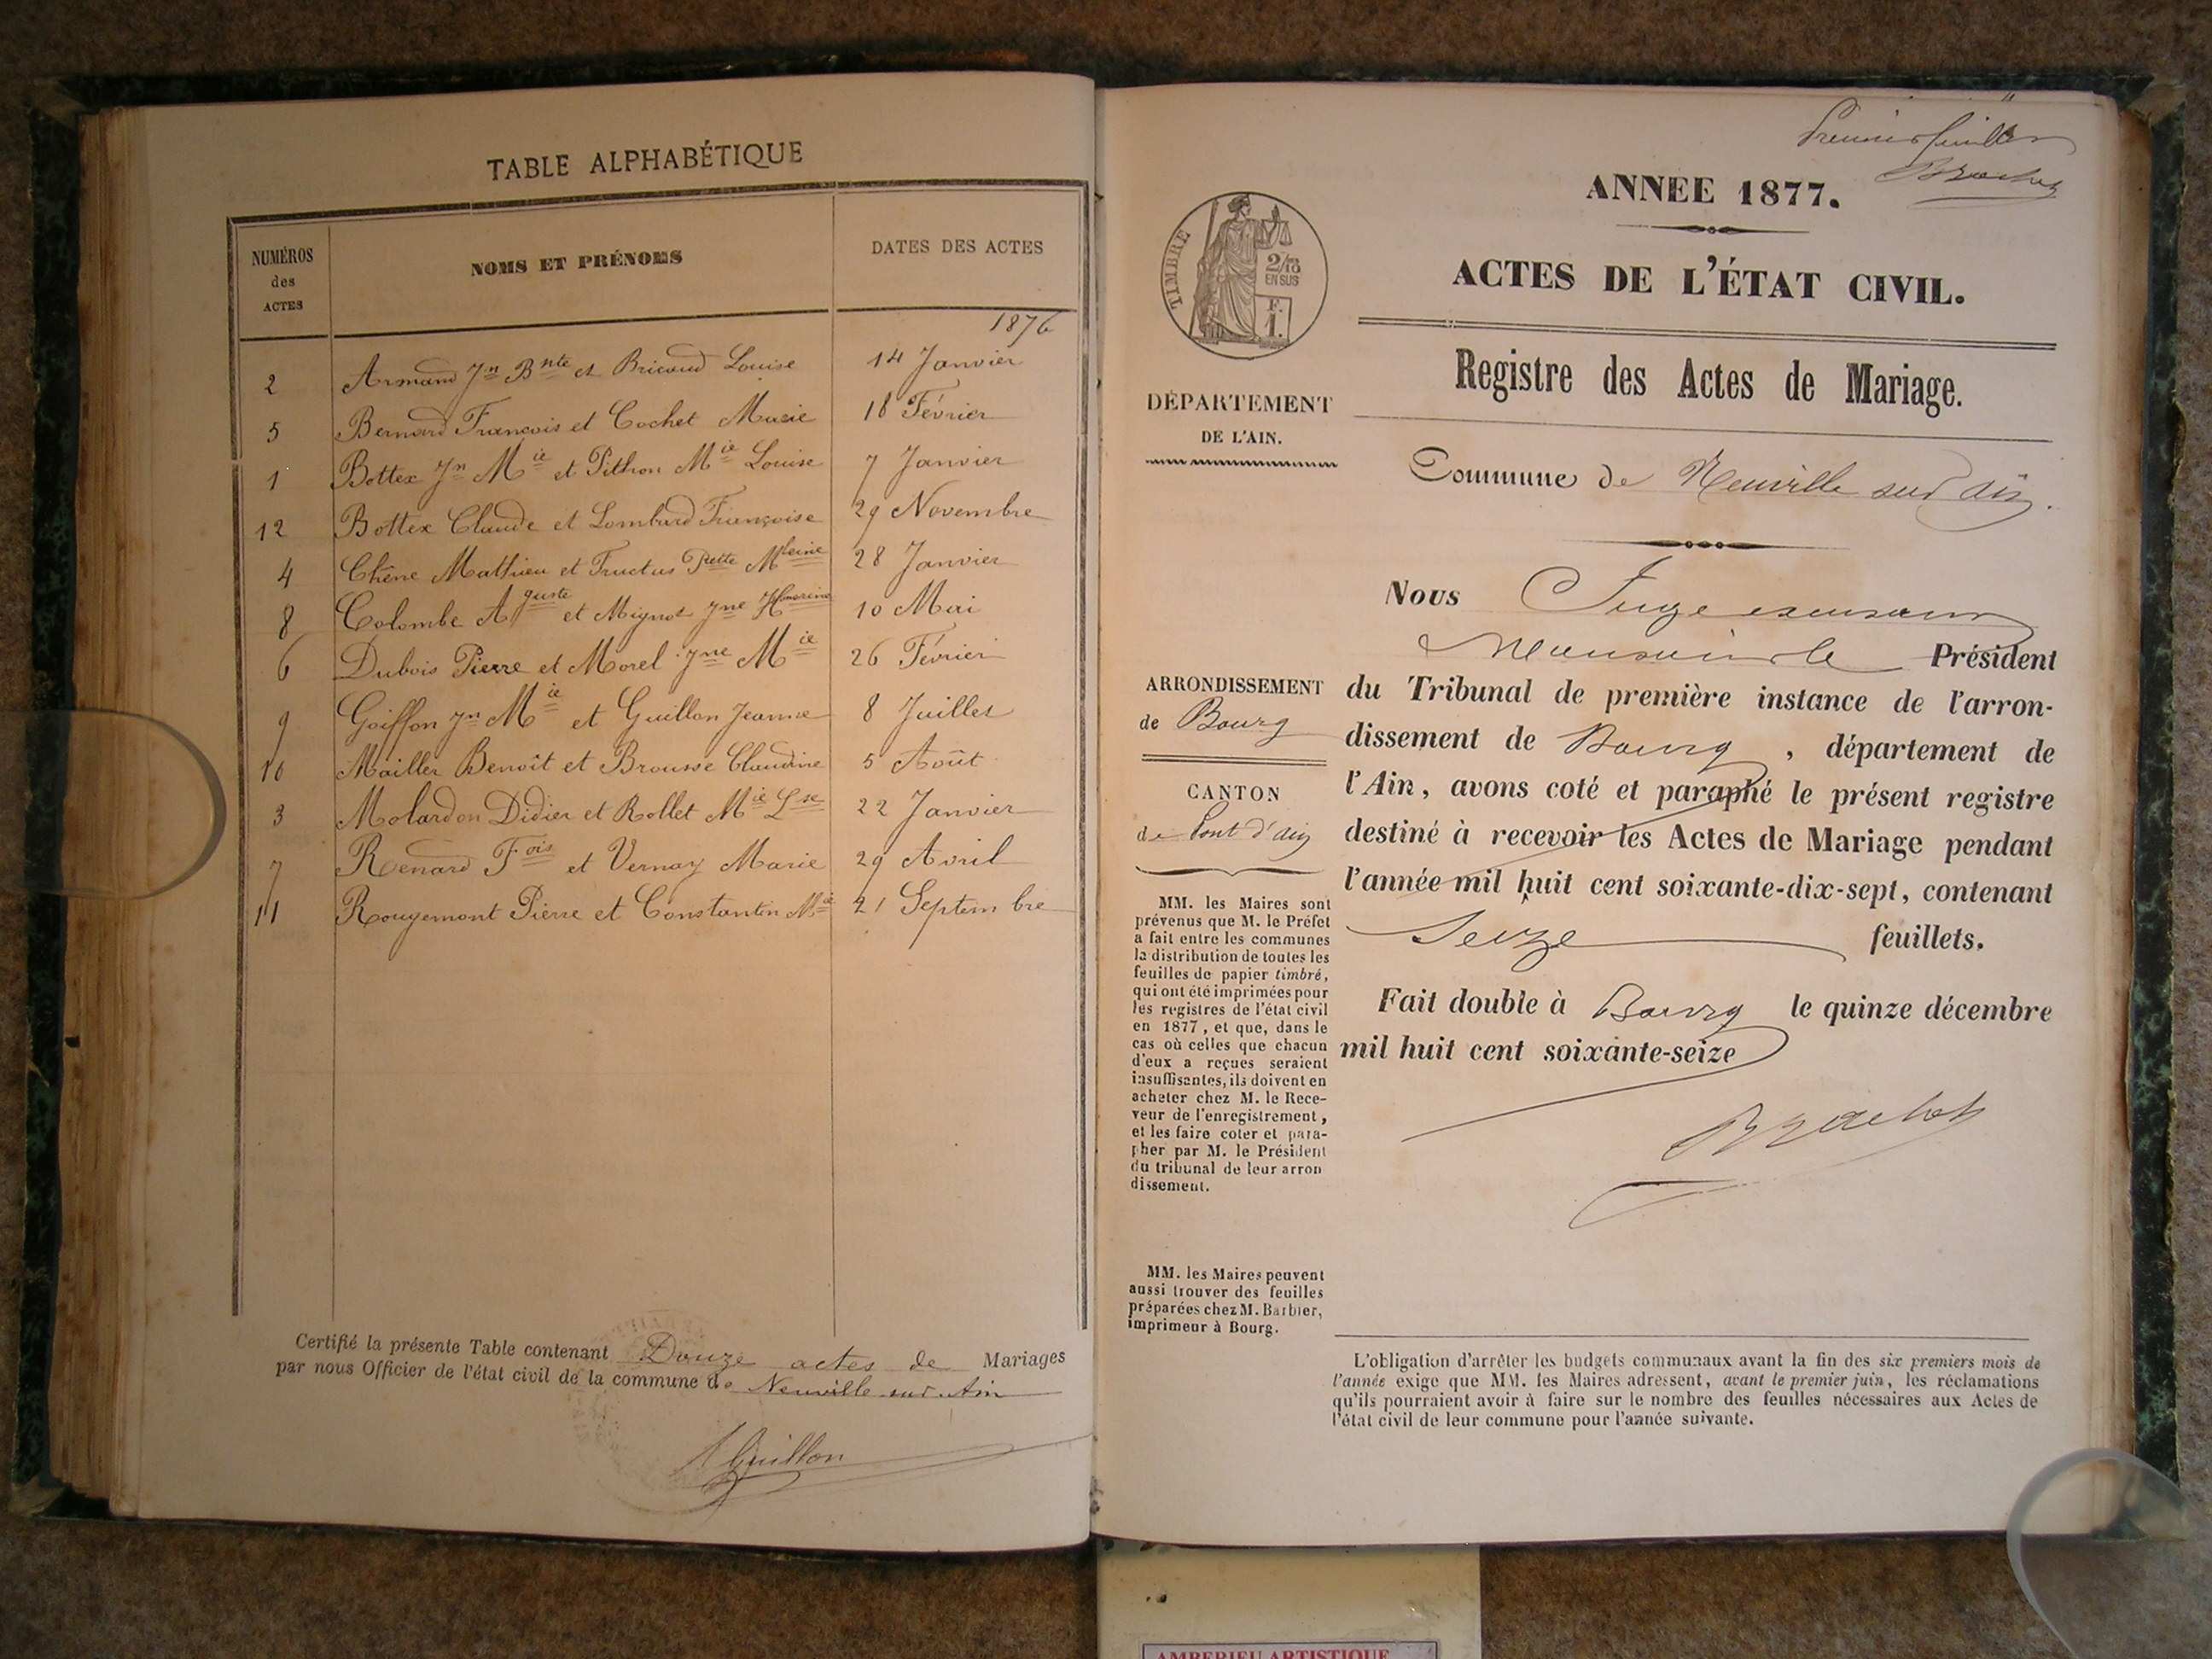 TABLE ALPHABÉTIQUE
NUMÉROS des ACTES
NOMS ET PRÉNOMS
DATES DES ACTES
1876
2 Armand Jn Bnte et Bricaud Louise 14 Janvier
5 Bernard François et Cochet Marie 18 Février
1 Bottex Jn Mie et Pithon Mie Louise 7 Janvier
12 Bottex Claude et Lombard Françoise 29 Novembre
4 Chêne Mathieu et Fructus Pette Mleine 28 Janvier
8 Colombe Aguste et Mignot Jne Honorine 10 Mai
6 Dubois Pierre et Morel Jne Mie 26 Février
9 Goiffon Jn Mie et Guillon Jeanne 8 Juillet
10 Mailler Benoît et Brousse Claudine 5 Août
3 Molardon Didier et Rollet Mie Lse 22 Janvier
7 Renard Fois et Vernay Marie 29 Avril
11 Rougemont Pierre et Constantin Mie 21 Septembre
Certifié la présente Table contenant Douze actes de Mariages
par nous Officier de l'état civil de la commune de Neuville sur Ain
Guillon
Premier feuillet
Brachet
ANNÉE 1877.
TIMBRE
2/10
EN SUS
F.
1.
ACTES DE L'ÉTAT CIVIL.
Registre des Actes de Mariage.
DÉPARTEMENT
DE L'AIN.
Commune de Neuville sur Ain.
Nous Juge
Président
du Tribunal de première instance de l'arron-
dissement de Bourg, département de
l'Ain, avons coté et paraphé le présent registre
destiné à recevoir les Actes de Mariage pendant
l'année mil huit cent soixante-dix-sept, contenant
Seize feuillets.
Fait double à Bourg le quinze décembre
mil huit cent soixante-seize
Brachet
ARRONDISSEMENT
de Bourg
CANTON
de Pont d'Ain
MM. les Maires sont
prévenus que M. le Préfet
a fait entre les communes
la distribution de toutes les
feuilles de papier timbré,
qui ont été imprimées pour
les registres de l'état civil
en 1877, et que, dans le
cas où celles que chacun
d'eux a reçues seraient
insuffisantes, ils doivent en
acheter chez M. le Rece-
veur de l'enregistrement,
et les faire coter et para-
pher par M. le Président
du tribunal de leur arron
dissement.
MM. les Maires peuvent
aussi trouver des feuilles
préparées chez M. Barbier,
imprimeur à Bourg.
L'obligation d'arrêter les budgets communaux avant la fin des six premiers mois de
l'année exige que MM. les Maires adressent, avant le premier juin, les réclamations
qu'ils pourraient avoir à faire sur le nombre des feuilles nécessaires aux Actes de
l'état civil de leur commune pour l'année suivante.
AMBERIEU ARTISTIQUE